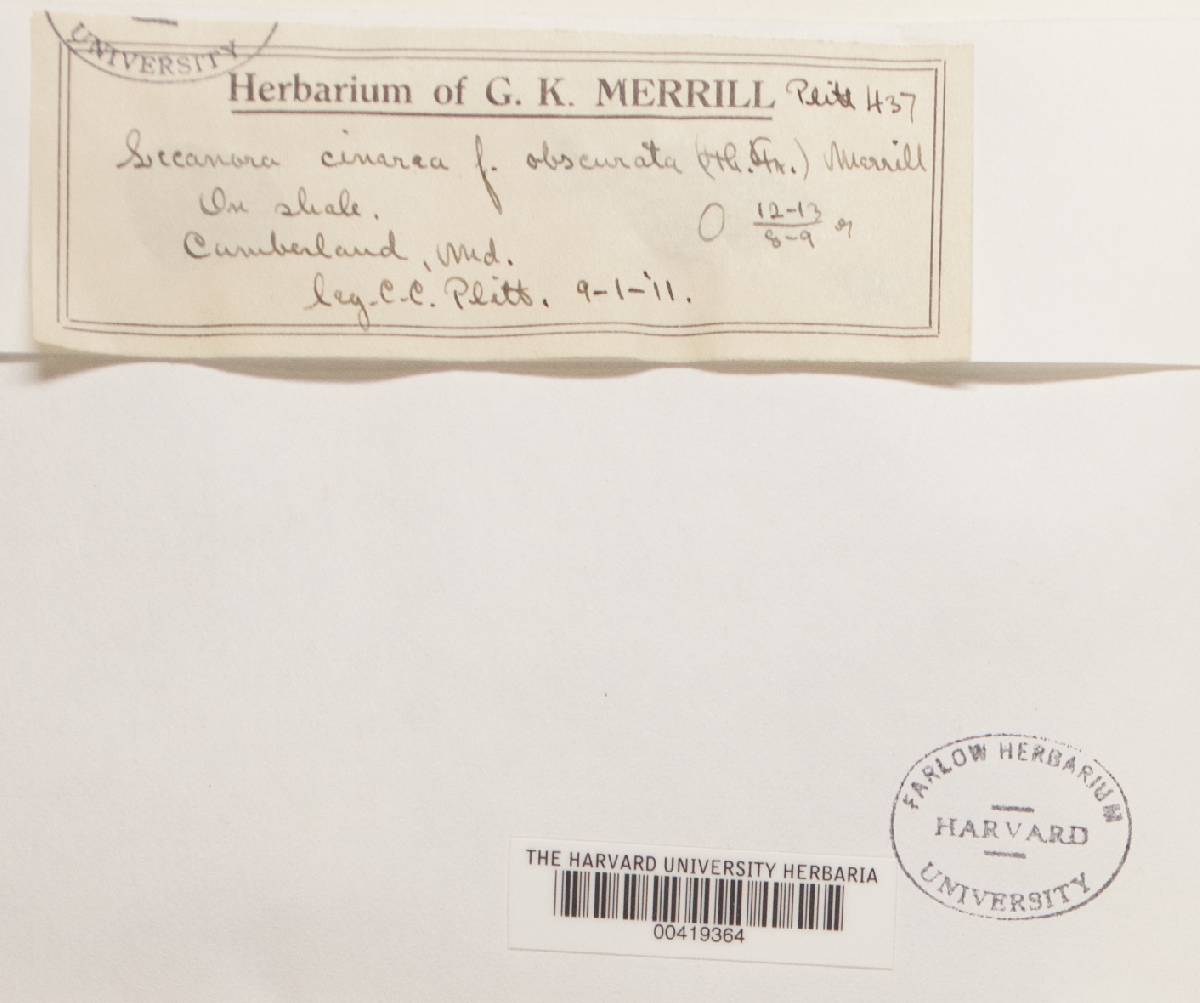 UNIVERSITY
Herbarium of G. K. MERRILL Plitt 437
Lecanora cinerea f. obscurata (Th. Fr.) Merrill
On shale.
12-13
8-9
Cumberland, Md.
leg. C. C. Plitt. 9-1-'11.
FARLOW HERBARIUM
HARVARD
UNIVERSITY
THE HARVARD UNIVERSITY HERBARIA
00419364